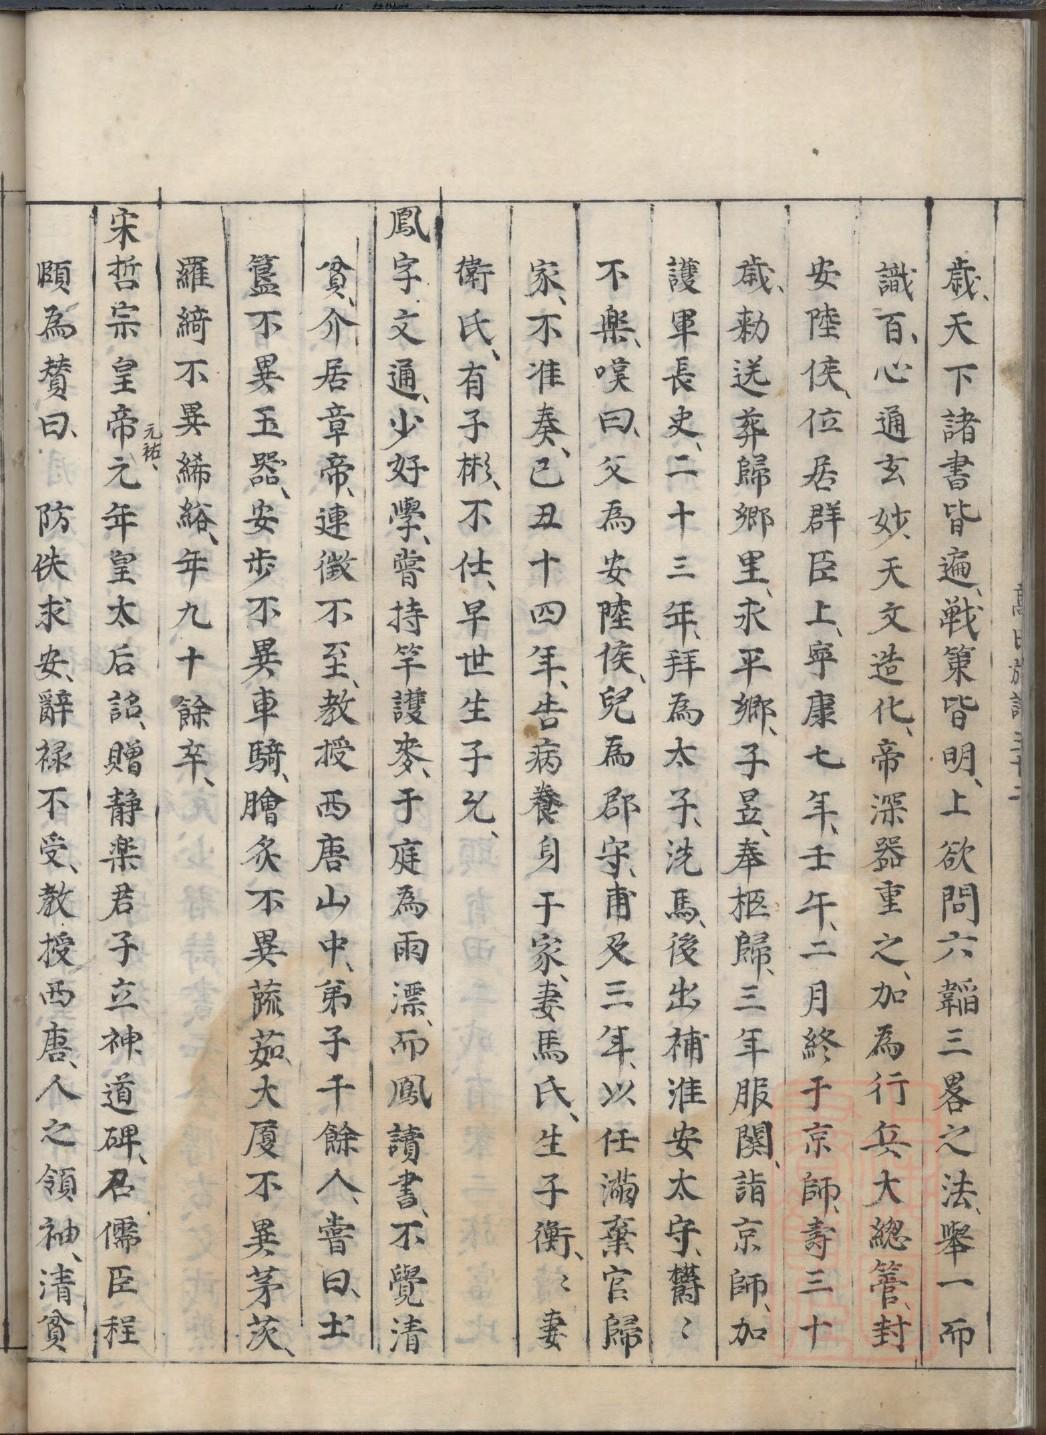 歲、天下諸書皆遍、戰策皆明、上欲問六韜三畧之法、舉一而
識百、心通玄妙、天文造化、帝深器重之、加為行兵大總管、封
安陸侯、位居群臣上、寧康七年、壬午、二月終于京師、壽三十
歲、勑送葬歸鄉里、永平鄉、子昱、奉柩歸、三年服闋、詣京師、加
護軍長史、二十三年、拜為太子洗馬、後出補淮安太守、欝〻
不樂、嘆曰、父為安陸侯、兒為郡守、甫及三年、以任滿棄官歸
家、不准奏、己丑十四年、告病養身于家、妻馬氏、生子衡、〻妻
衛氏、有子彬、不仕、早世生子允、
鳳字文通、少好學、嘗持竿護麥、于庭為雨漂、而鳳讀書、不覺清
貧、介居章帝、連徵不至、教授西唐山中、弟子千餘人、嘗曰、土
簋不異玉器、安步不異車騎、膾炙不異蔬茹、大厦不異茅茨、
羅綺不異絺綌、年九十餘卒、
宋哲宗皇帝元祐、元年皇太后詔、贈靜樂君子立神道碑、召儒臣程
頤為贊曰、防佚求安、辭祿不受、教授西唐、人之領袖、清貧